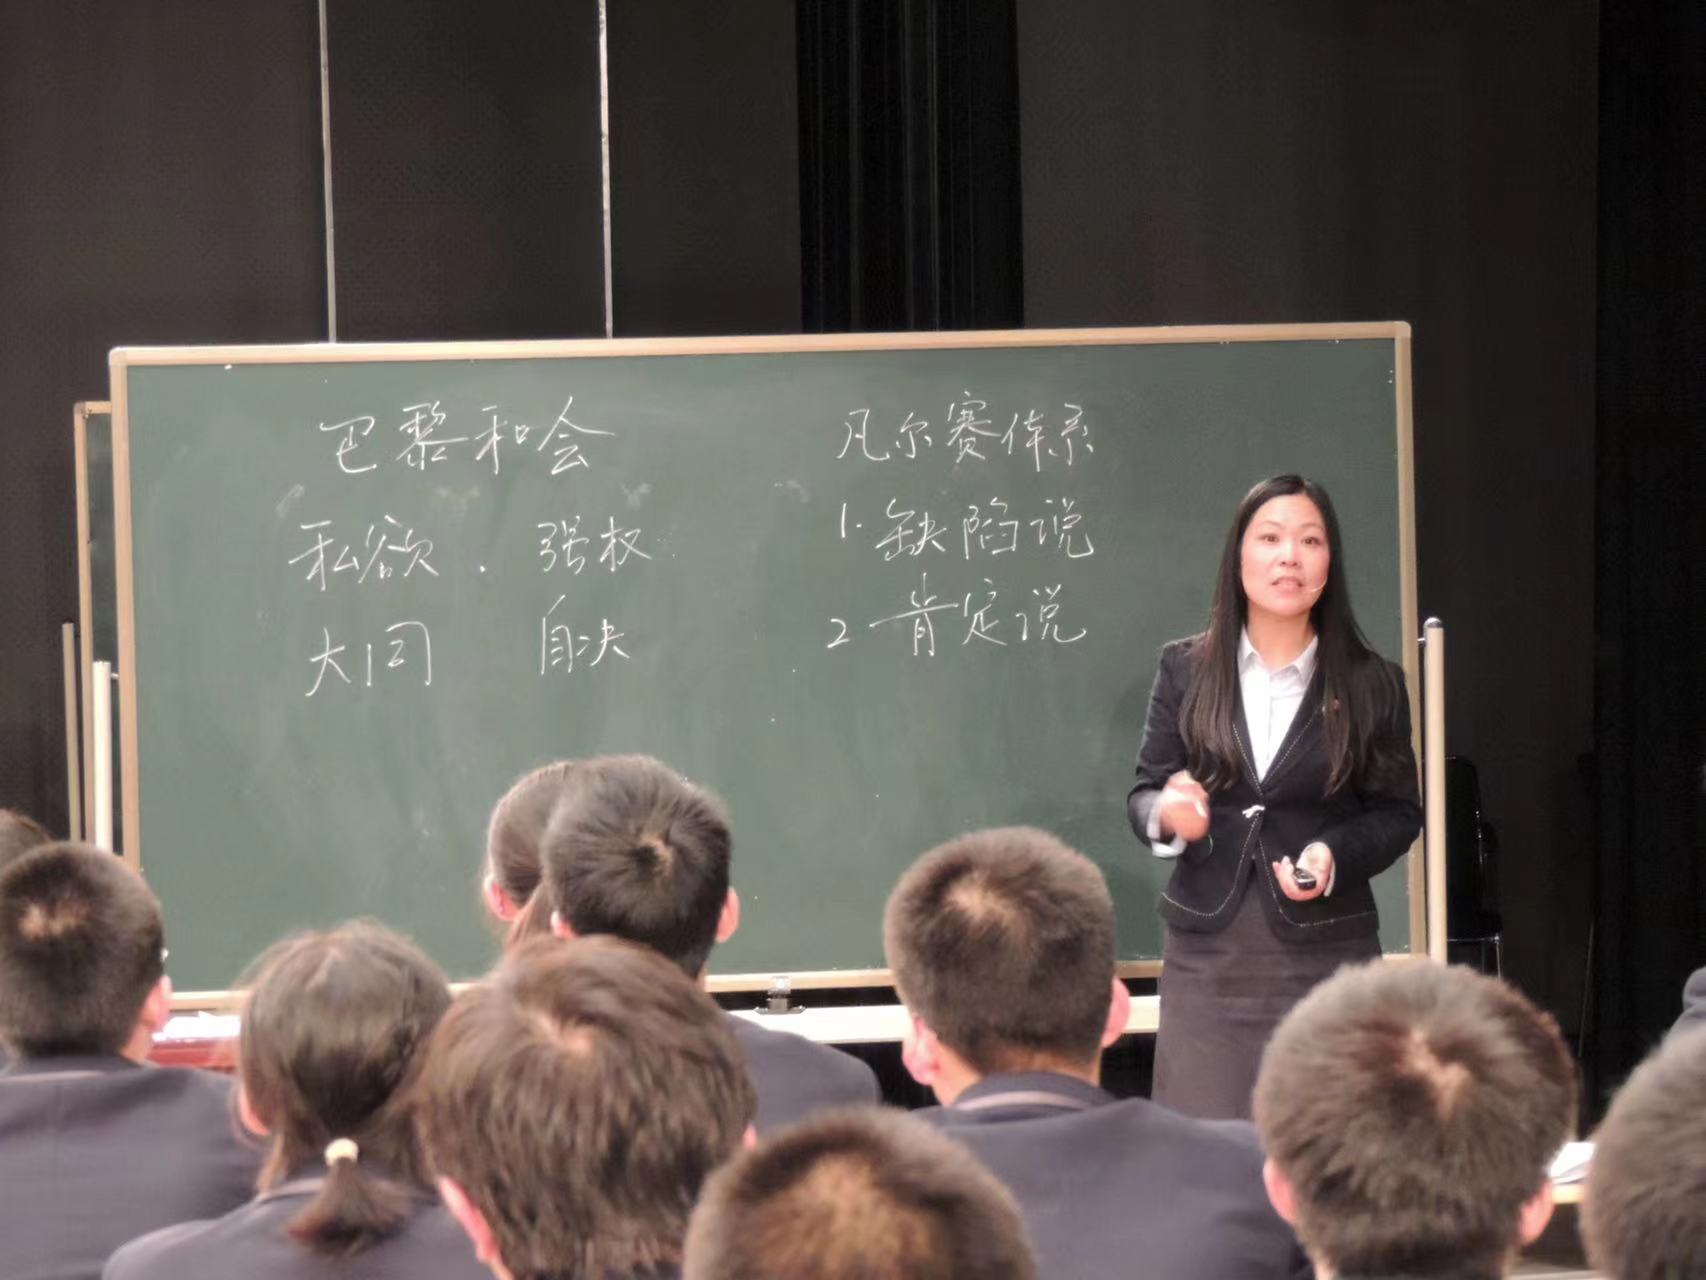 巴黎和会
私欲．强权
大同 自决
凡尔赛体系
1.缺陷说
2 肯定说